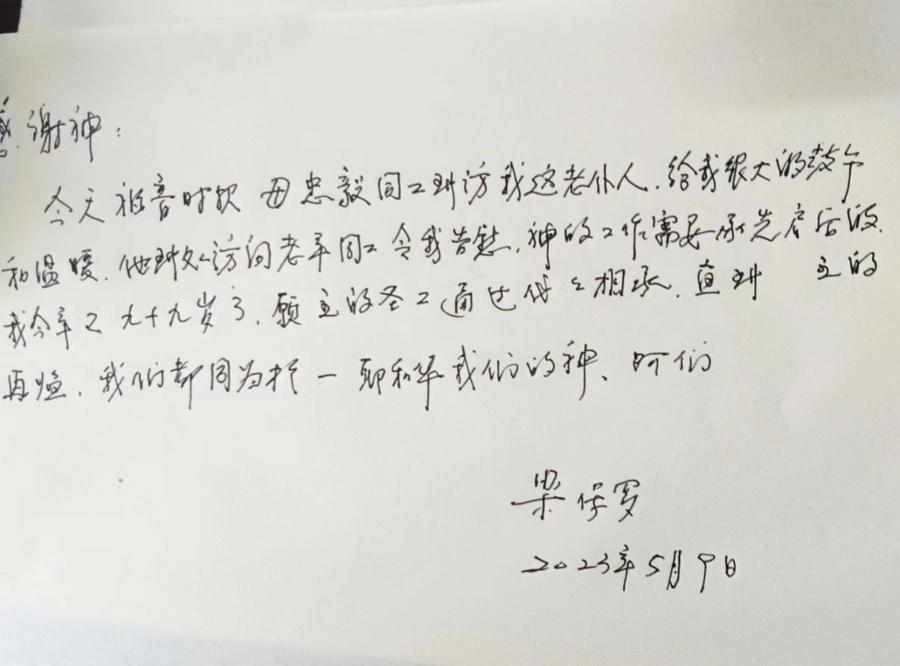 感谢神：
今天福音时报 毋忠毅同工到访我这老仆人，给我很大的鼓午
和温暖。他到处访问老年同工令我告慰，神的工作需要承先启后的。
我今年已九十九岁了，愿主的圣工通过代代相承，直到 主的
再临，我们都同为 一耶和华我们的神、阿们
梁保罗
2023年5月9日